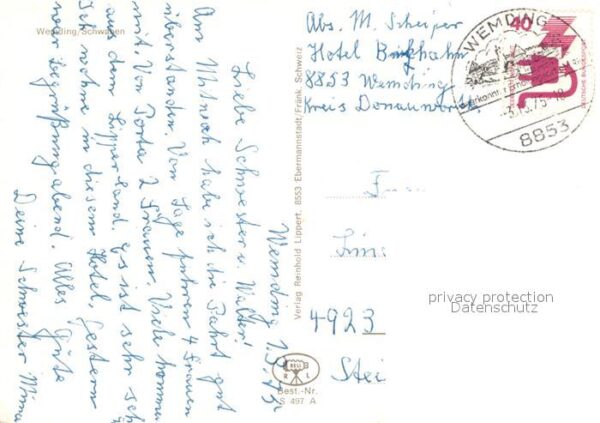 Wemding/Schwaben
Wemding 1.9.75
Liebe Schwester u. Walter!
Am Mittwoch habe ich die Fahrt gut
überstanden. Von Lage fuhren 4 Frauen
mit. Von Porta 2 Frauen. Viele kommen
aus dem Lipperland. Es ist sehr sch
Ich wohne in diesem Hotel, gestern
war Begrüßungabend. Alles Gute
Deine Schwester Minna
Verlag Reinhold Lippert, 8553 Ebermannstadt/Fränk. Schweiz
Best.-Nr.
S 497 A
Abs. M. Scheiper
Hotel
8853 Wemding
Kreis Donauwörth
40
WEMDING
8853
4923
privacy protection
Datenschutz